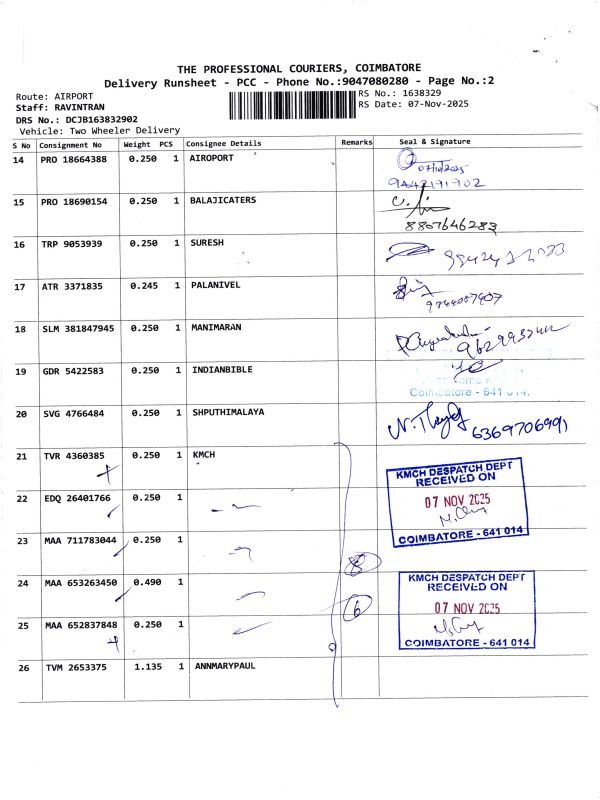 THE PROFESSIONAL COURIERS, COIMBATORE
Delivery Runsheet - PCC - Phone No.:9047080280 - Page No.:2
Route: AIRPORT
RS No.: 1638329
Staff: RAVINTRAN
RS Date: 07-Nov-2025
DRS No.: DCJB163832902
Vehicle: Two Wheeler Delivery
S No Consignment No Weight PCS Consignee Details Remarks Seal & Signature
14 PRO 18664388 0.250 1 AIROPORT
15 PRO 18690154 0.250 1 BALAJICATERS
8807646283
16 TRP 9053939 0.250 1 SURESH
17 ATR 3371835 0.245 1 PALANIVEL
18 SLM 381847945 0.250 1 MANIMARAN
19 GDR 5422583 0.250 1 INDIANBIBLE
Coimbatore - 641
20 SVG 4766484 0.250 1 SHPUTHIMALAYA
6369706991
21 TVR 4360385 0.250 1 KMCH
KMCH DESPATCH DEPT
RECEIVED ON
22 EDQ 26401766 0.250 1
07 NOV 2025
23 MAA 711783044 0.250 1
COIMBATORE - 641 014
8
24 MAA 653263450 0.490 1
KMCH DESPATCH DEPT
RECEIVED ON
6
07 NOV 2025
25 MAA 652837848 0.250 1
COIMBATORE - 641 014
26 TVM 2653375 1.135 1 ANNMARYPAUL